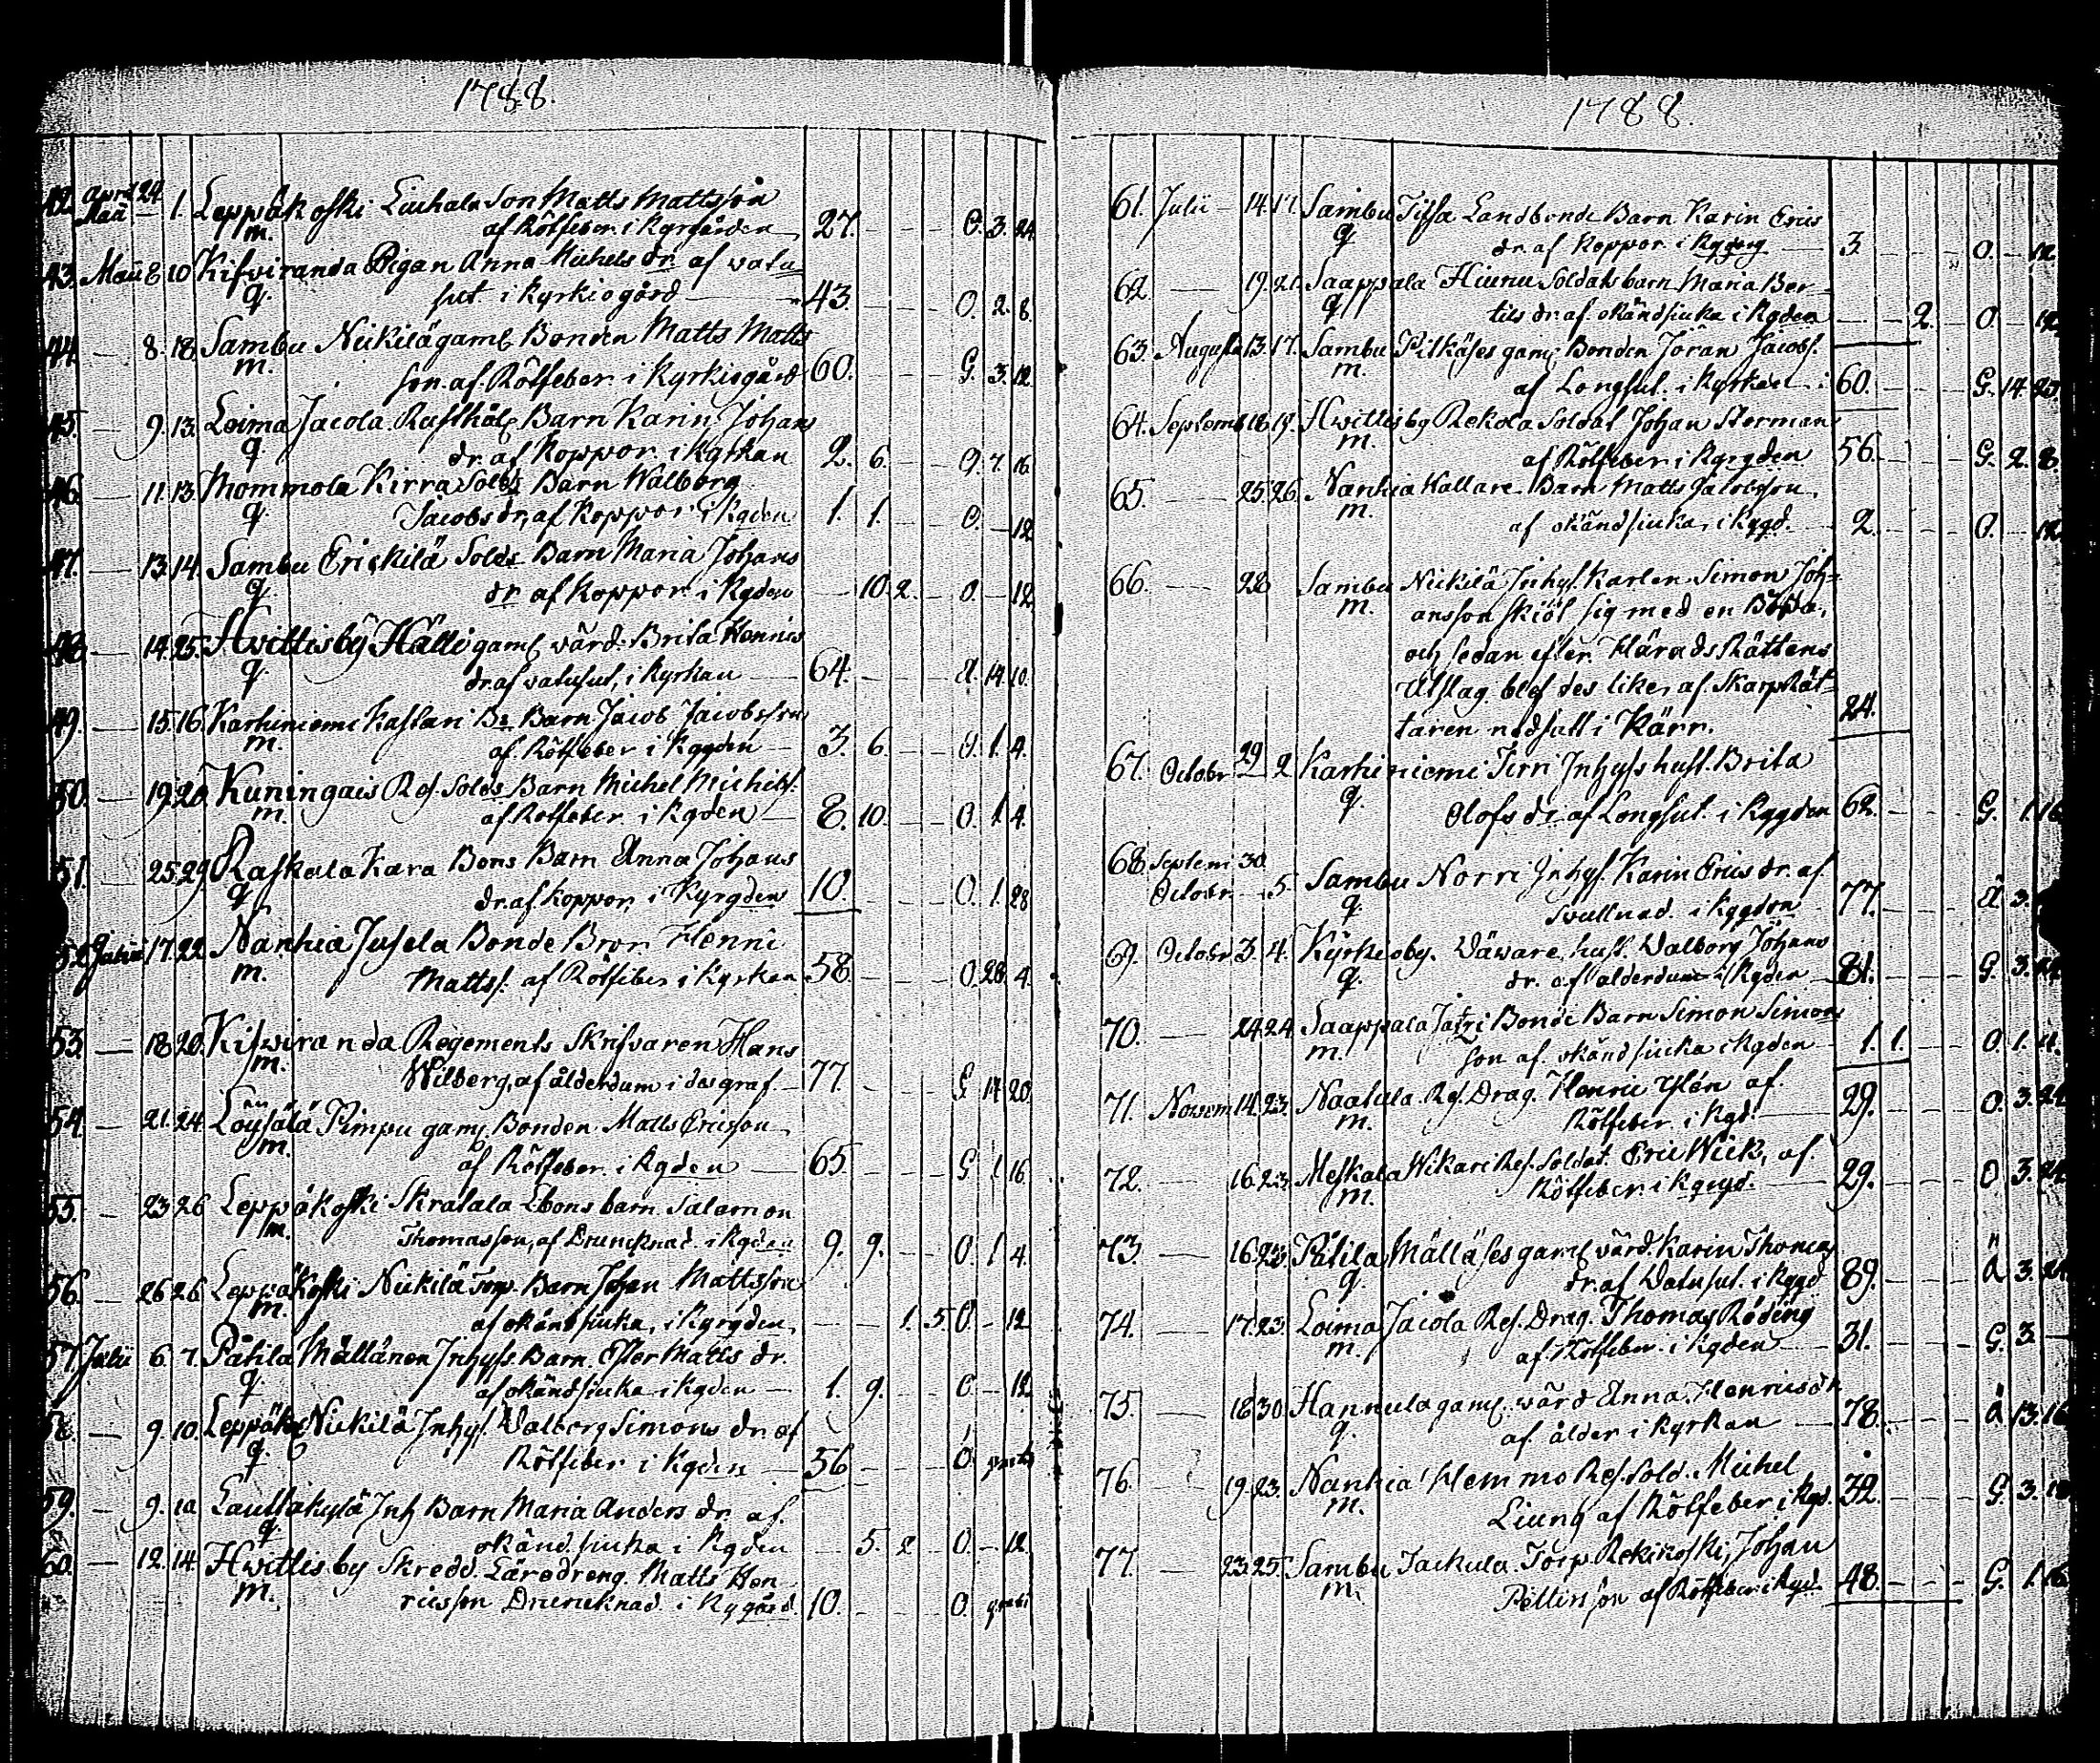 1788.
42. April 24
Maii — 1. Leppäkoski Liuhala Son Matts Mattsson
m. af Rötfeber i Kyrgården 27. — — — O. 3. 24
43. Maii 8 10 Kifwiranda Pigan Anna Michels dr af vatu
q. sut i Kyrkiogård 43 — — — O. 2. 8.
44. — 8. 18. Sambu Nickilä gaml Bonden Matts Matts
m. son af Rötfeber i Kyrkiogård 60. — — — G. 3. 12.
45. — 9. 13. Loima Jacola Rusthål Barn Karin Johans
q dr. af Koppor i Kyrkan 2. 6. — — O. 7. 16.
46. — 11. 13 Mommola Kirra Solds Barn Walborg
q. Jacobs dr, af Koppor i Kgden 1. 1. — — O. — 12
47. — 13. 14. Sambu Erickilä Solds Barn Maria Johans
q. dr af Koppor i Kgden — 10. 2. — O. — 12
48. — 14. 25. Hwittisby Hälli gaml wärd. Brita Henrics
q. dr. af vatusut, i Kyrkan 64. — — — Ä. 14. 10.
49. — 15. 16. Karhiniemi Kastari Bs Barn Jacob Jacobsson
m. af Rötfeber i Kggden — 3. 6. — — O. 1. 4.
50. — 19. 20 Kuningais Rs. Solds Barn Michel Michels.
m. af Rotfeber i Kgden — 8. 10. — — O. 1. 4.
51. — 25. 29. Raskala Kara Bons Barn Anna Johans
q dr. af Koppor, i Kyrgden 10. — — — O. 1. 28
52. Junii 17. 22. Nanhia Jusela Bonde Bror Henric
m. Mattss. af Rötfeber i Kyrkan 58. — — — O. 28. 4.
53. — 18. 20. Kifwiranda Regements Skrifvaren Hans
m. Wilberg, af ålderdum i des graf. — 77. — — — G 17 20
54. — 21. 24. Löysälä Pimpu gaml Bonden Matts Ericsson
m. af Rötfeber i Kgden — 65. — — — G 1 16
55. — 23. 26 Leppäkoski Skratala Ebons barn Salamon
m. Thomasson, af Druncknad i Kgden 9. 9. — — O. 1. 4
56. — 26. 26. Leppäkoski Nickilä Torp. Barn Johan Mattsson
m. af okänd siuka, i Kyrgden, — — 1. 5. O — 12
57. Julii 6. 7. Påtila Mällänen Inhyss. Barn. Ester Matts dr.
q. af okänd siuka i Kgden — 1. 9. — — O — 12
58. — 9. 10. Leppäko Nickilä Inhys. Valborg Simons dr. af
q. Rötfeber i Kgden — 56 — — — O. gratis
59. — 9. 10. Lauttakylä Inh Barn Maria Anders dr. af.
q. okänd siuka i Kgden — 5. 2 — O. — 12.
60. — 12. 14. Hwittisby Skredd. Läredreng. Matts Hen
m. ricsson Druncknad i Kygård. 10. — — — O. gratis
1788.
61. Julii — 14. 17. Sambu Tissa Landbonde Barn Karin Erics
q dr. af Koppor i Kygdrg — 3. — — — O. — 12
62. — 19. 21. Saappala Hiunu Soldats barn Maria Ber
q tils dr. af okänd siuka i Kgden — — 2. — O — 12
63. Augusti 13. 17. Sambu Pitkäses gaml Bonden Jöran Jacobs.
m. af Longsut. i Kyrkan 60. — — — G. 14. 20.
64. Septemb 18. 19. Hwittisby Rekola Soldat Johan Storman
m. af Rötfeber i Kyrgden 56. — — — G. 2. 8.
65. — 25. 26. Nanhia Kallare Barn Matts Jacobsson,
m. af okänd siuka, i Kygd. 2. — — — O. — 12
66. — 28 Sambu Nickilä Inhys. Karlen Simon Joh=
m. ansson skiöt sig med en Bössa,
och sedan efter Härads Rättens
Utslag blef des like af Skarp Rät=
taren nedsatt i Kärr. 24.
67. October 29 2. Karhiniemi Tirri Inhyss hust. Brita
q. Olofs dr af Longsut. i Kggden 62. — — — G. 1. 16
68. Septem 30.
October — 5. Sambu Norri Inhys. Karin Erics dr. af
q. Svullnad. i Kggden 77. — — — Ä 3.
69. October 3. 4. Kyrkioby. Wäware hust. Valborg Johans
q. dr. af ålderdum i Kgden — 81. — — — G. 3. 24
70. — 24. 24. Saappala Jatri Bonde Barn Simon Simons
m. son af. okänd siuka i Kgden 1. 1. — — O. 1. 4.
71. Novem 14. 23. Naatula. Rs. Drag. Henric Ylén af.
m. Rötfeber. i Kgd. 29. — — — O. 3. 24
72. — 16. 23. Meskala Wikari Res. Soldat Eric Wick, af
m. Rötfeber. i Kgrgd. 29. — — — O 3. 24
73. — 16. 23. Påtila Mälläses gaml wärd. Karin Thomas
q. dr. af Vatusut. i Kggd 89. — — — Ä 3. 24
74. — 17. 23. Loima Jacola Res. Drag. Thomas Röding
m. af Rötfeber i Kgden 31. — — — G. 3. —
75. — 18. 30. Hannula gaml. wärd Anna. Henricsdr
q. af ålder i Kyrkan 78. — — — Ä 13. 16
76. — 19. 23. Nanhia Hemmo Res. Sold. Michel
m. Liung af Rötfeber, i Kgd. 32. — — — G. 3. 18
77. — 23. 25. Sambu Jackula Torp Rekikoski, Johan
m. Pettersson af Rötfeber i Kgd. 48. — — — G. 1. 16